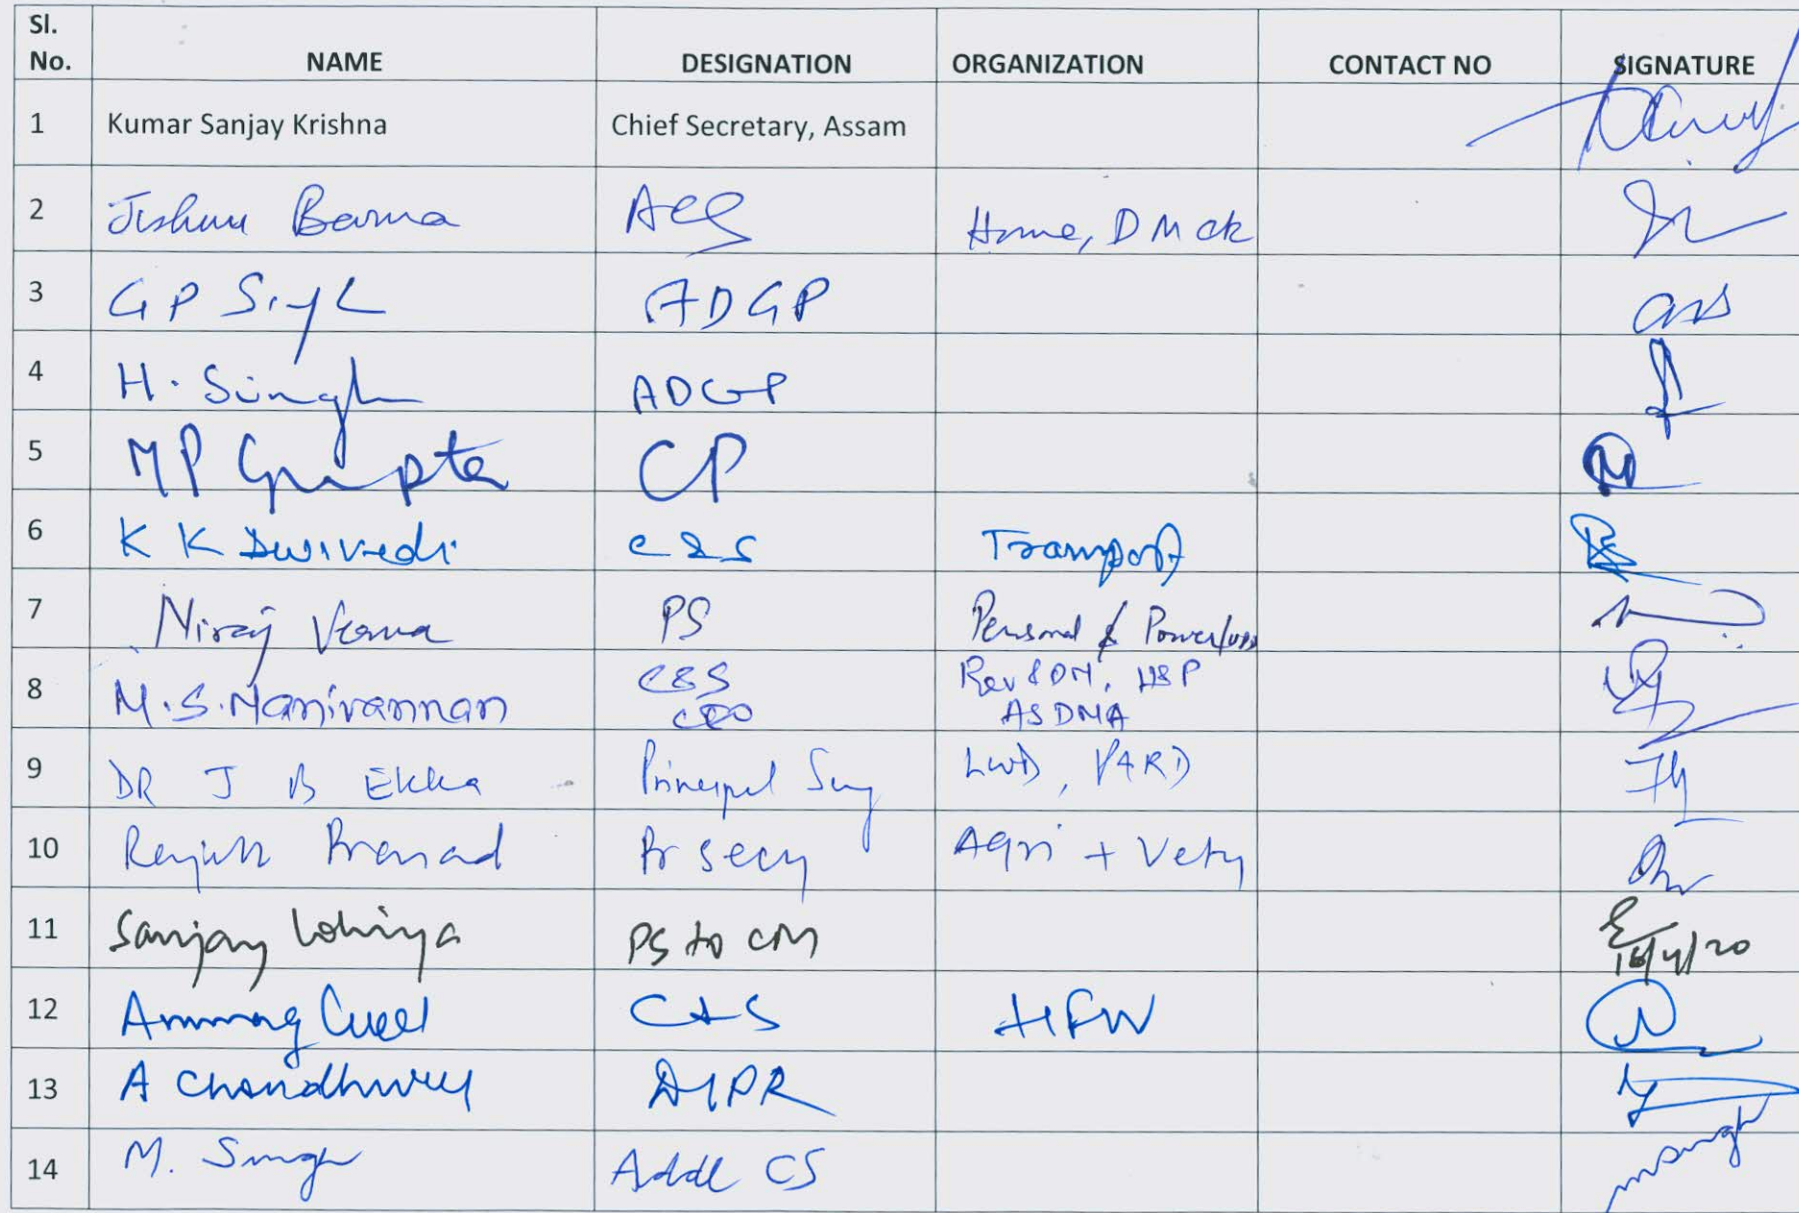 Sl. No. NAME DESIGNATION ORGANIZATION CONTACT NO SIGNATURE
1 Kumar Sanjay Krishna Chief Secretary, Assam
2 Jishnu Barua ACS Home, DM etc
3 G P Singh ADGP
4 H. Singh ADGP
5 MP Gupta CP
6 K K Dwivedi C&S Transport
7 Niraj Verma PS Personal & Power
8 M.S. Manivannan C&S CEO Rev & DM, H&P ASDMA
9 DR J B Ekka Principal Secy PARD
10 Rajesh Prasad Pr Secy Agri + Vety
11 Sanjay Lohiya PS to CM 16/4/20
12 Anurag Goel C&S HFW
13 A Choudhury DIPR
14 M. Singh Addl CS msingh